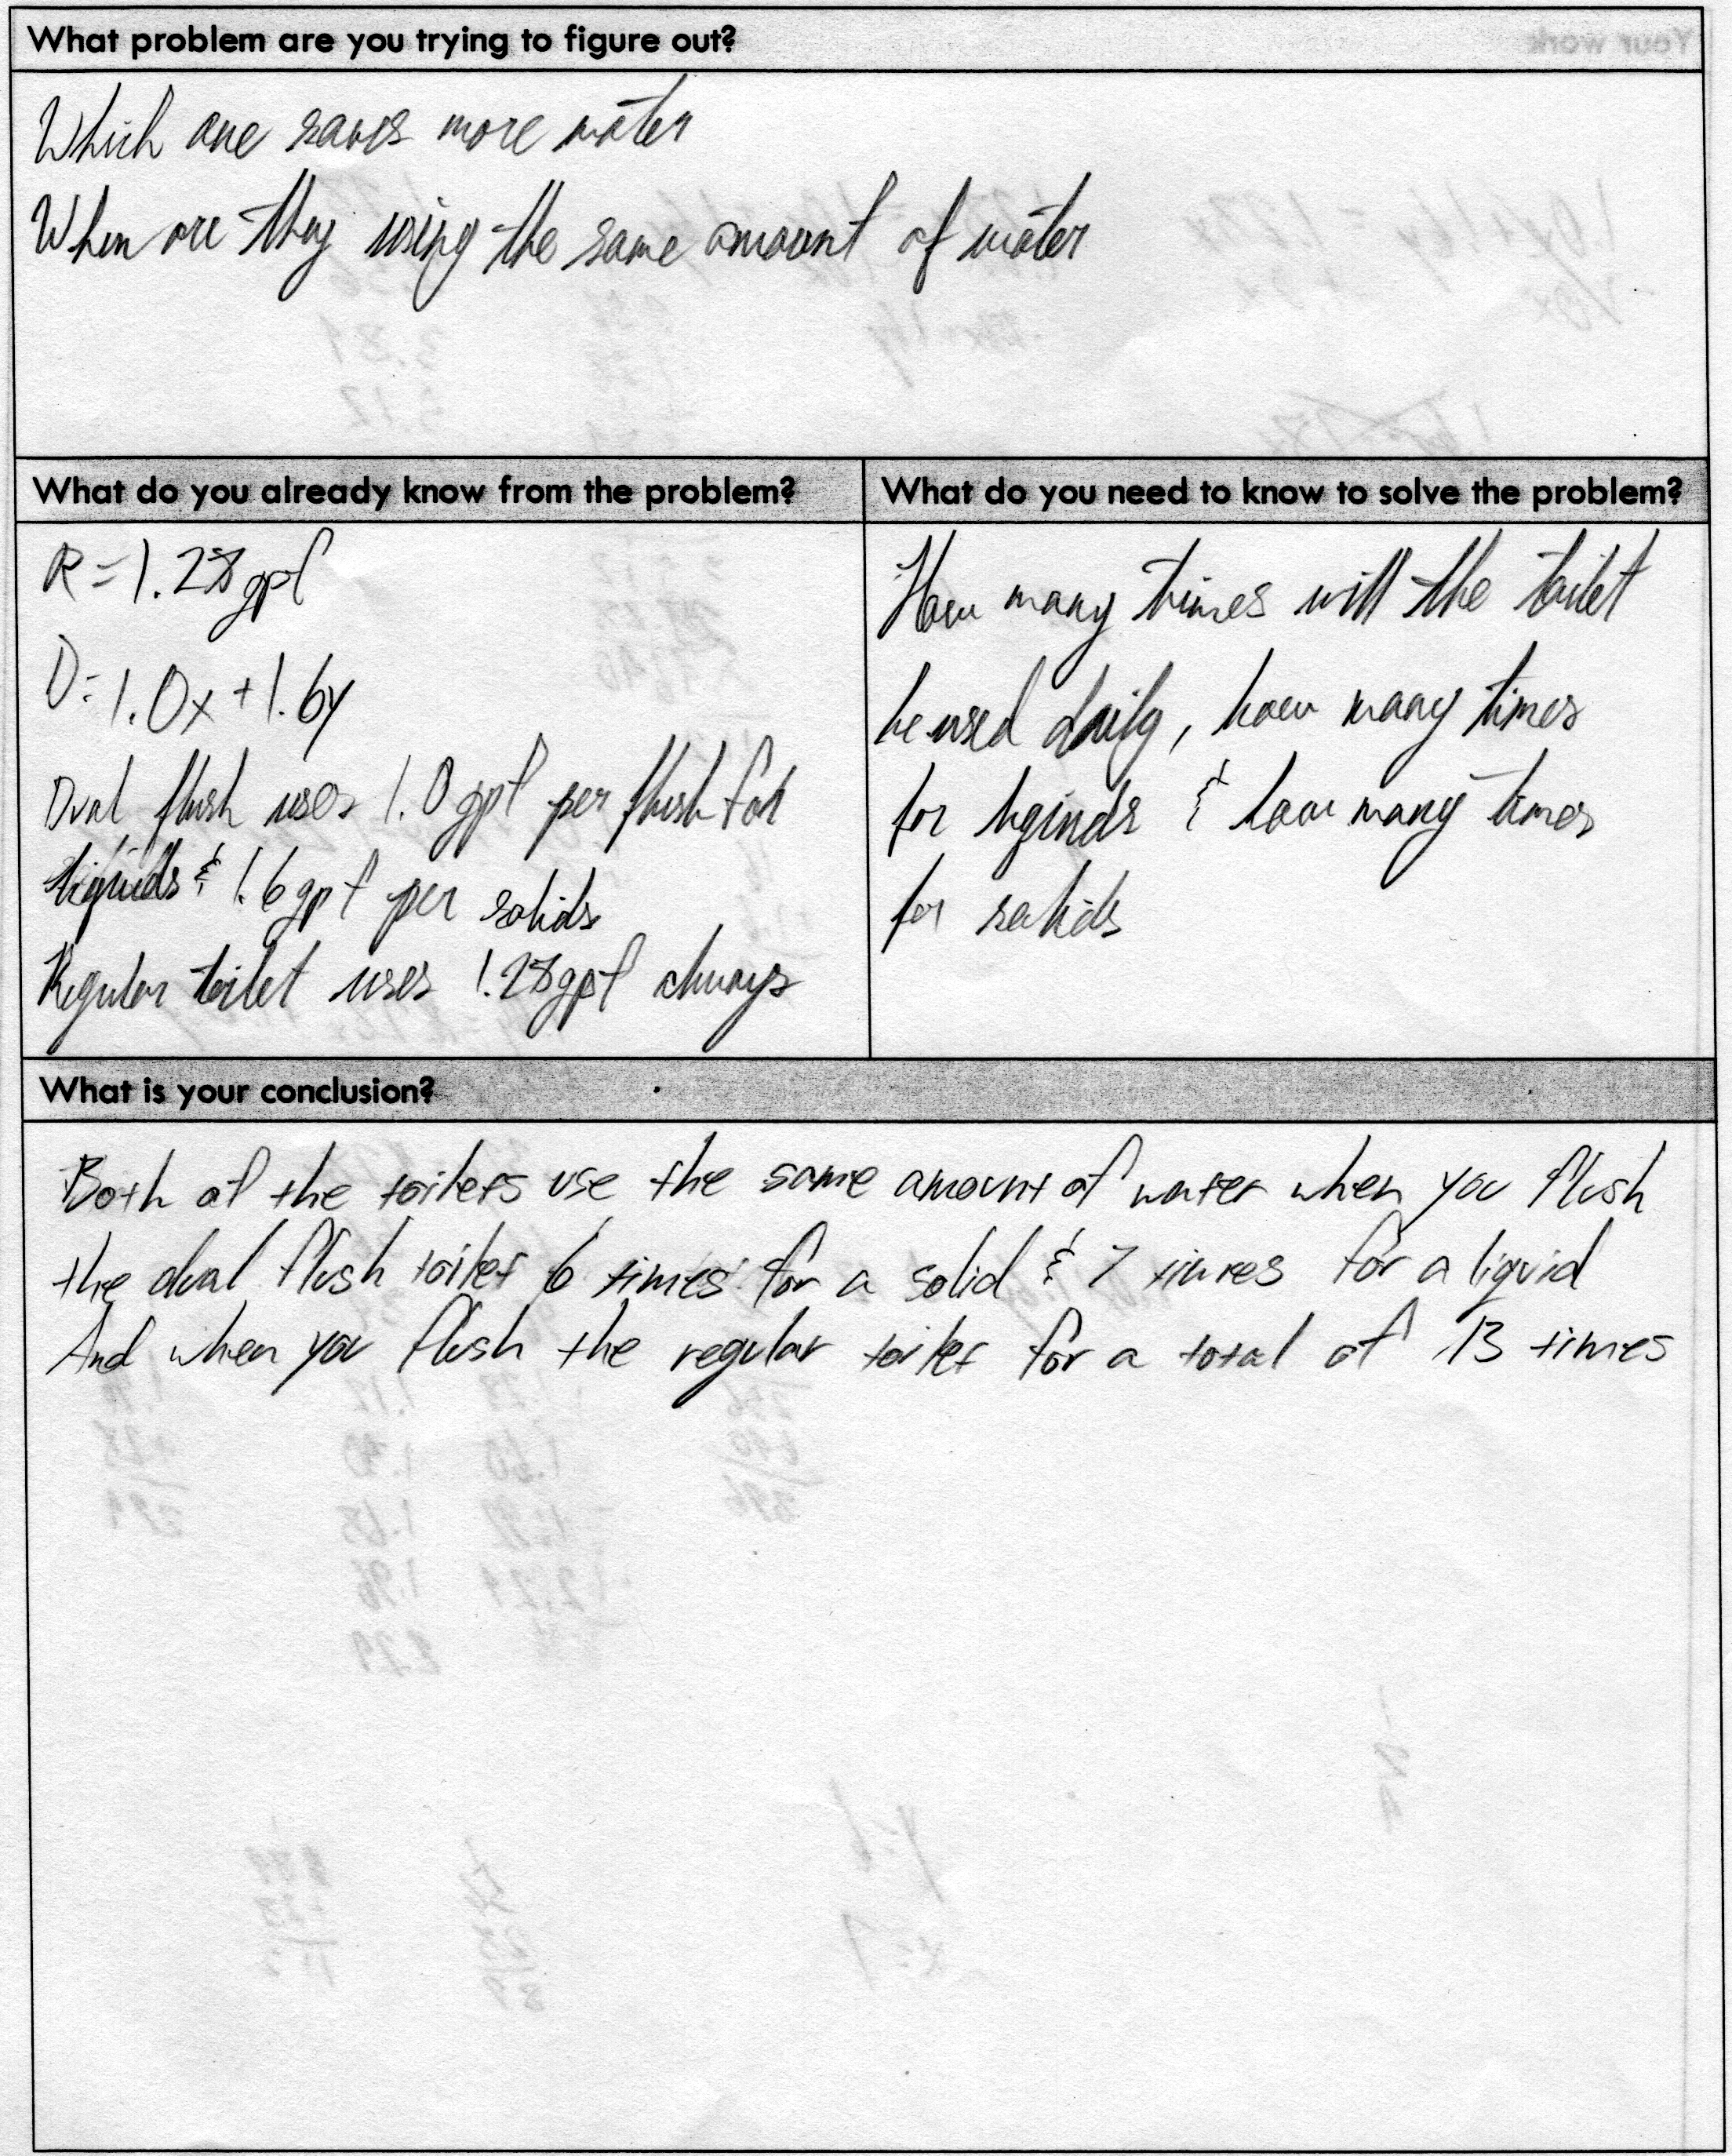 What problem are you trying to figure out?
Your work
Which one saves more water
When are they using the same amount of water
What do you already know from the problem?
R=1.28gpf
D=1.0x+1.6y
Dual flush uses 1.0gpf per flush for
liquids & 1.6gpf per solids
Regular toilet uses 1.28gpf always
What do you need to know to solve the problem?
How many times will the toilet
be used daily, how many times
for liquids & how many times
for solids
What is your conclusion?
Both of the toilets use the same amount of water when you flush
the dual flush toilet 6 times for a solid & 7 times for a liquid
And when you flush the regular toilet for a total of 13 times